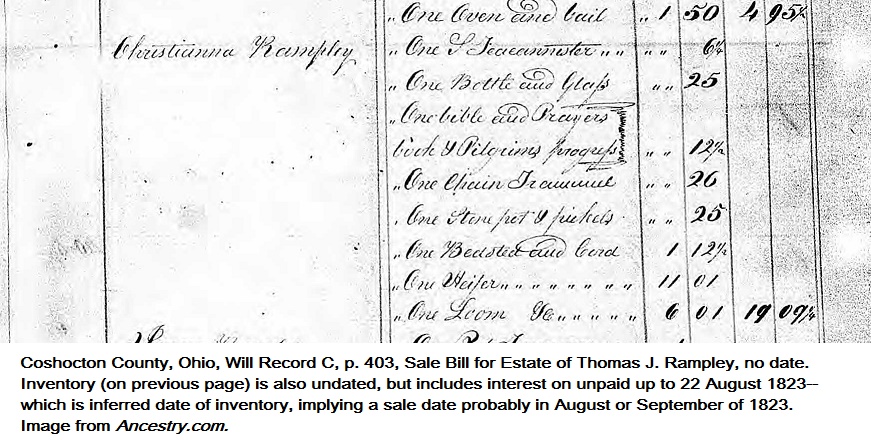 „ One Oven and bail „ 1 50 4 95½
Christianna Rampley „ One S Teacannister „ „ „ „ 6¼
„ One Bottle and Glass „ „ 25
„ One bible and Prayers
book & Pilgrims progress „ „ 12½
„ One Chain Trammel „ „ 26
„ One Stone pot & pickels „ „ 25
„ One Bedsted and Cord 1 12½
„ One Heifer „ „ „ „ „ „ „ „ 11 01
„ One Loom &c „ „ „ „ „ 6 01 19 09¼
Coshocton County, Ohio, Will Record C, p. 403, Sale Bill for Estate of Thomas J. Rampley, no date.
Inventory (on previous page) is also undated, but includes interest on unpaid up to 22 August 1823--
which is inferred date of inventory, implying a sale date probably in August or September of 1823.
Image from Ancestry.com.